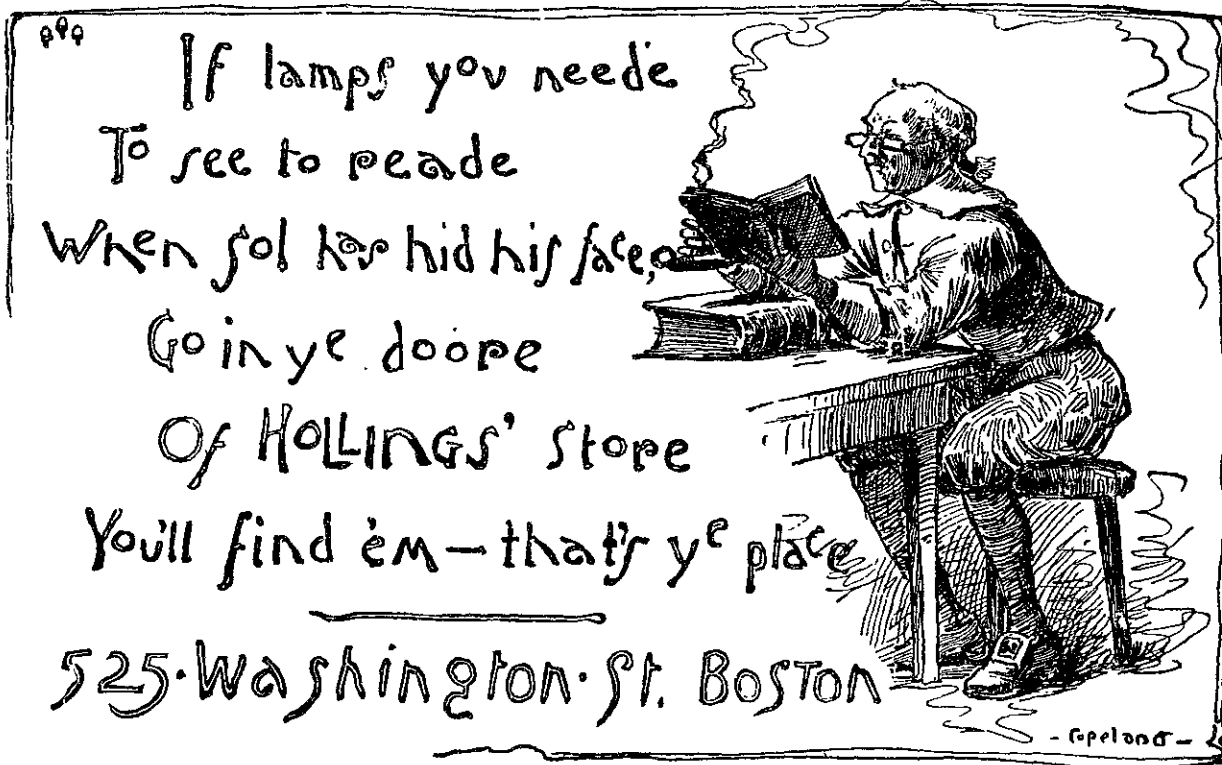 If lamps you neede
To see to reade
When sol has hid his face,
Go in ye doore
Of HOLLINGS' store
You'll find 'em — that's ye place
525 · Washington · St. BOSTON
- Copeland -